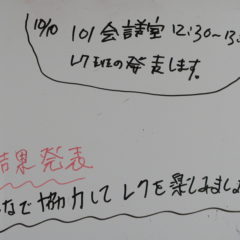 10/10 101会議室 12:30~13:
レク班の発表します。
結果発表
なで協力してレクを楽しみましょ